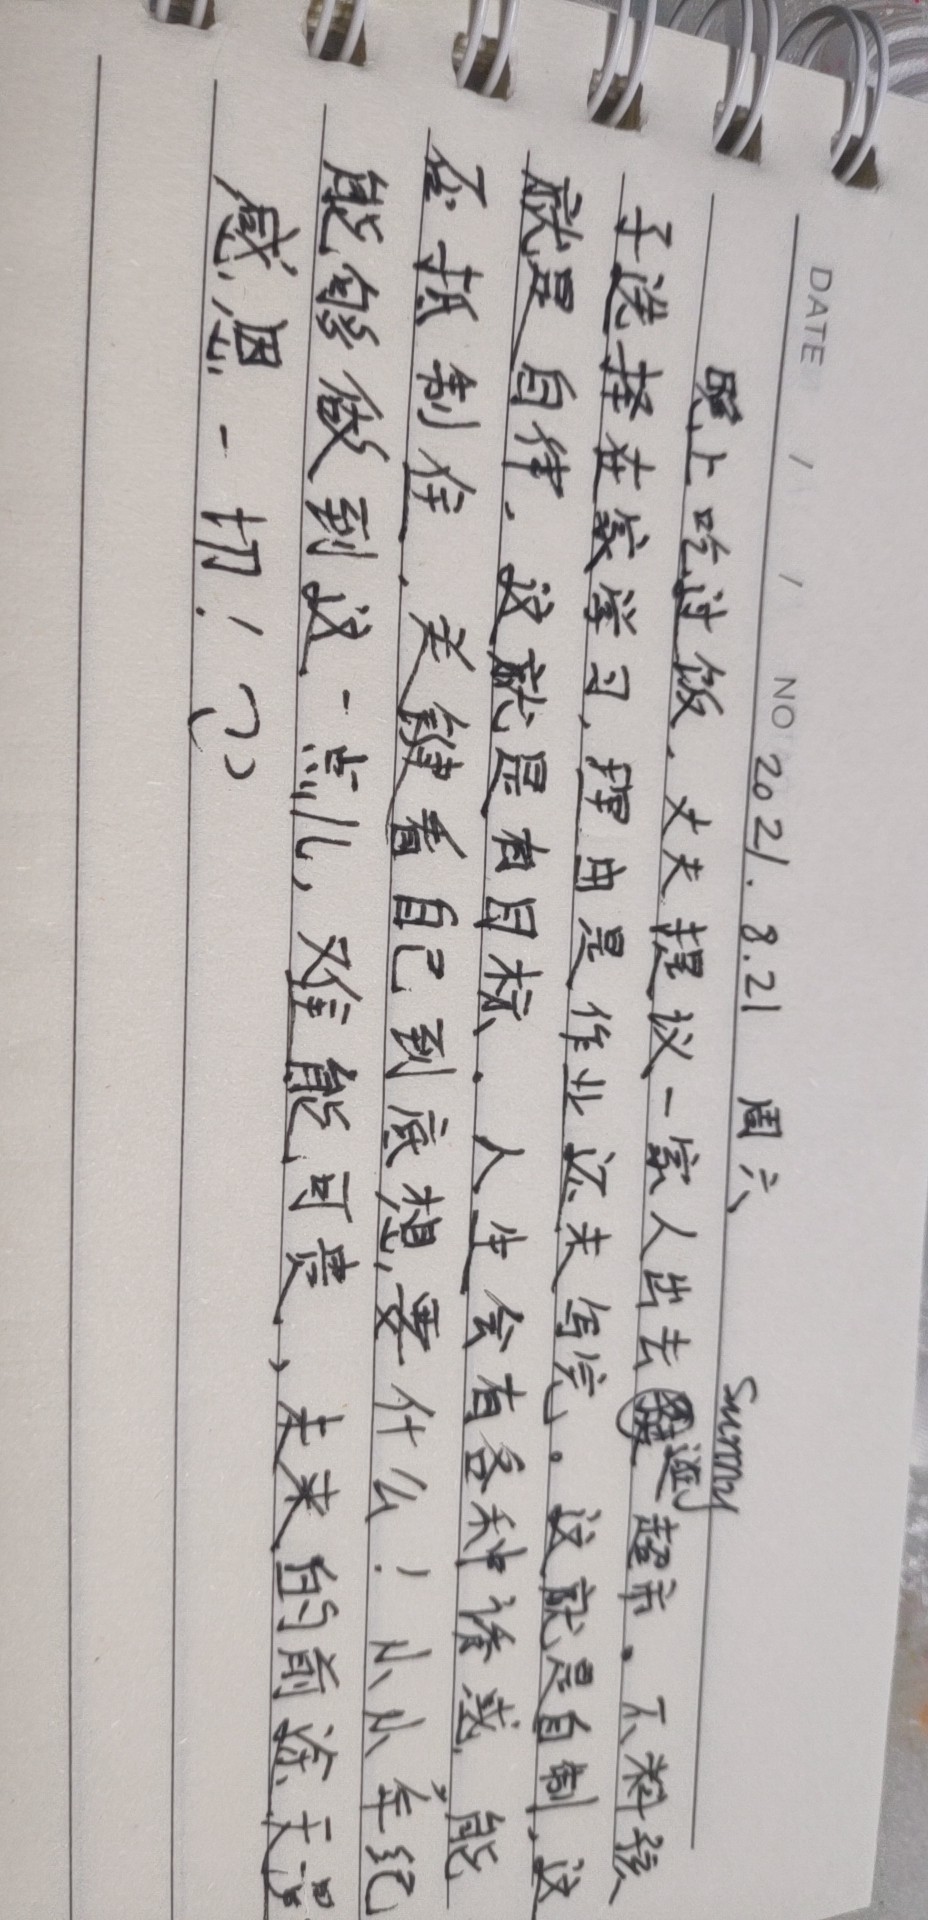 DATE / / NO
2021.8.21 周六 Sunny
晚上吃过饭，丈夫提议一家人出去逛超市。不料孩
子选择在家学习，理由是作业还未写完。这就是自制，这
就是自律，这就是有目标。人生会有各种诱惑，能
否抵制住，关键看自己到底想要什么！小小年纪
能够做到这一点儿，难能可贵，未来的前途无量
感恩一切！